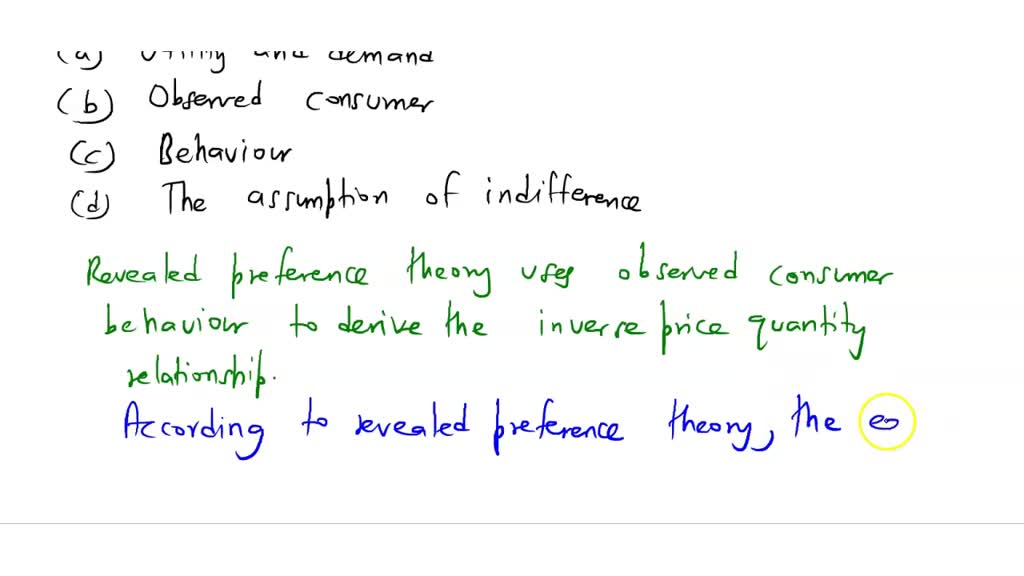 (a) Utility and demand
(b) Observed consumer
(c) Behaviour
(d) The assumption of indifference
Revealed preference theory uses observed consumer
behaviour to derive the inverse price quantity
relationship.
According to revealed preference theory, the